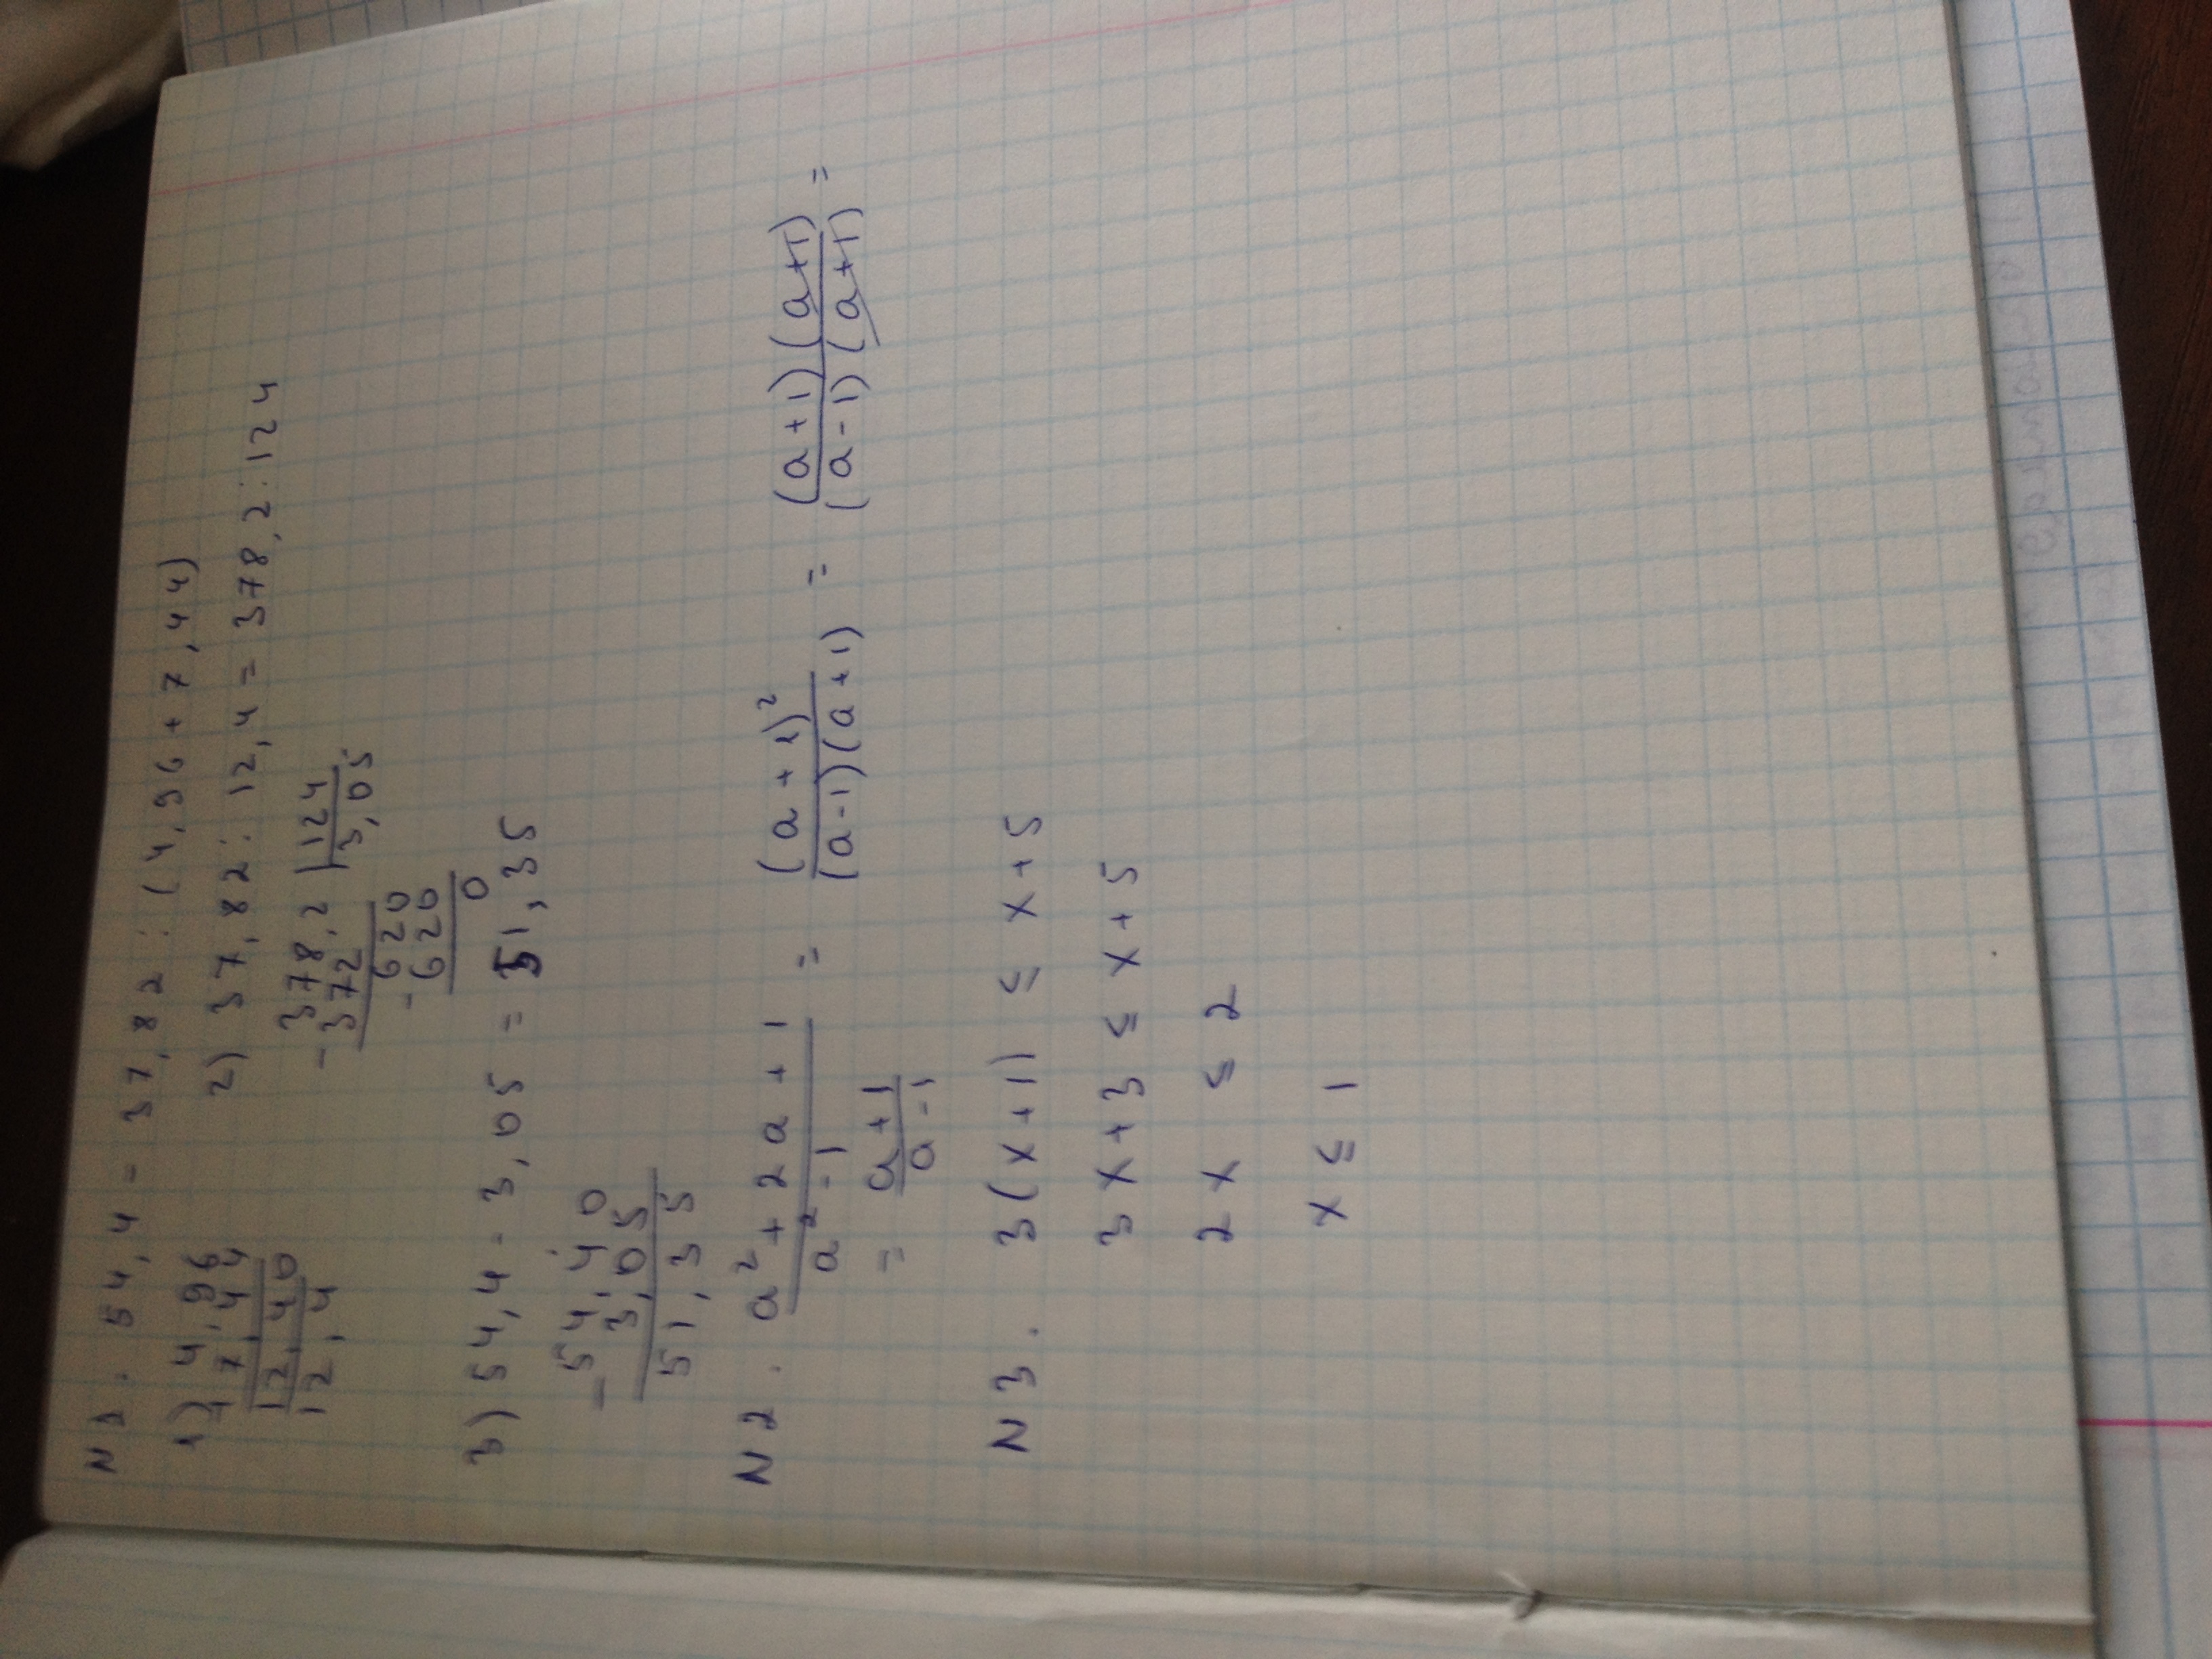 N 1. 54,4 - 37,82 : (4,96 + 7,44)
1) 4,96
+ 7,44
12,40
12,4
2) 37,82 : 12,4 = 378,2 : 124
- 378,2 | 124
372 3,05
- 620
620
0
3) 54,4 - 3,05 = 51,35
- 54,40
3,05
51,35
N 2. a² + 2a + 1 / a² - 1 = (a + 1)² / (a - 1)(a + 1) = (a + 1)(a + 1) / (a - 1)(a + 1) =
= a + 1 / a - 1
N 3. 3(x + 1) ≤ x + 5
3x + 3 ≤ x + 5
2x ≤ 2
x ≤ 1